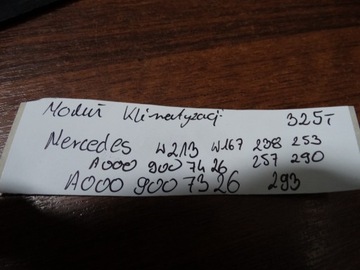 Moduł Klimatyzacji 325T
Mercedes W213 W167 238 253
A000 900 7426 257 290
A000 900 7326 293